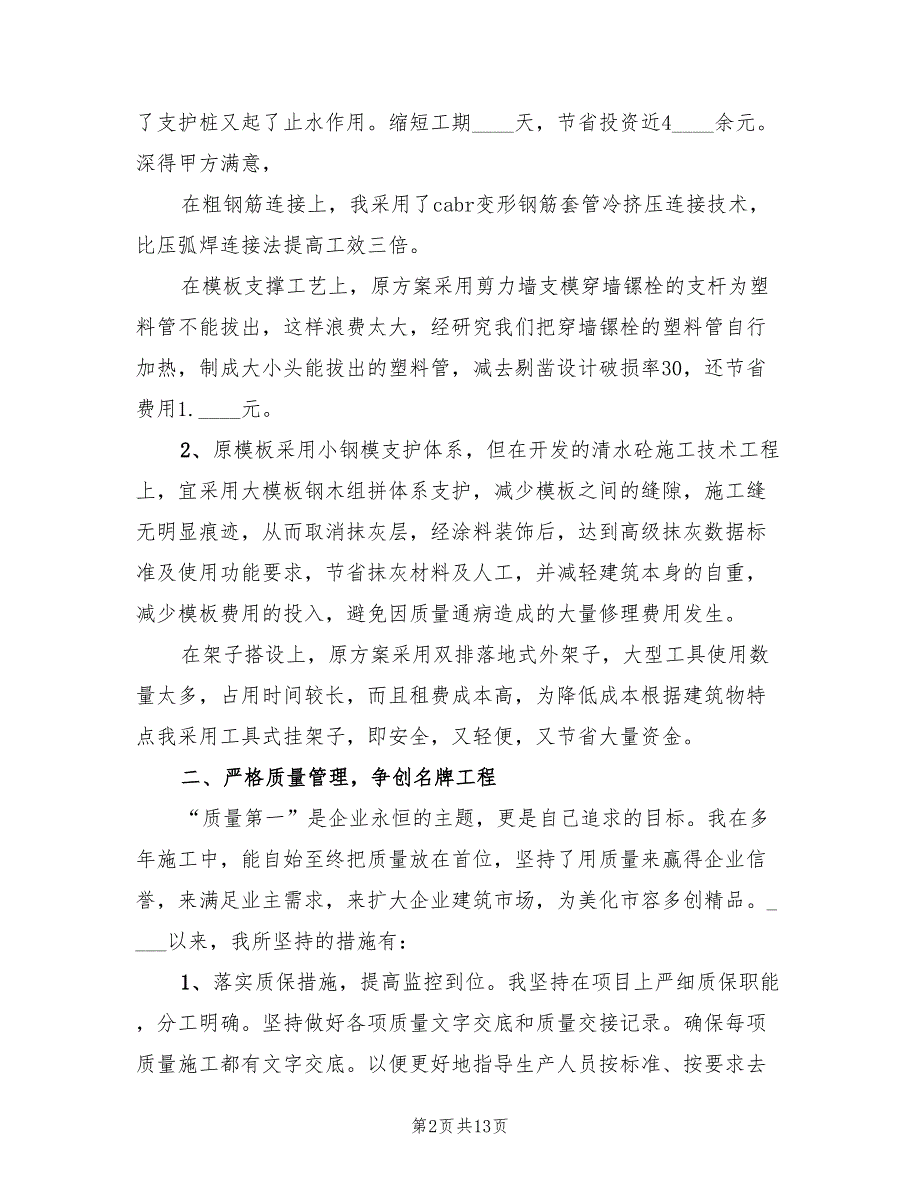 了支护桩又起了止水作用。缩短工期____天，节省投资近4____余元。
深得甲方满意，
在粗钢筋连接上，我采用了cabr变形钢筋套管冷挤压连接技术，
比压弧焊连接法提高工效三倍。
在模板支撑工艺上，原方案采用剪力墙支模穿墙镙栓的支杆为塑
料管不能拔出，这样浪费太大，经研究我们把穿墙镙栓的塑料管自行
加热，制成大小头能拔出的塑料管，减去剔凿设计破损率30，还节省
费用1.____元。
2、原模板采用小钢模支护体系，但在开发的清水砼施工技术工程
上，宜采用大模板钢木组拼体系支护，减少模板之间的缝隙，施工缝
无明显痕迹，从而取消抹灰层，经涂料装饰后，达到高级抹灰数据标
准及使用功能要求，节省抹灰材料及人工，并减轻建筑本身的自重，
减少模板费用的投入，避免因质量通病造成的大量修理费用发生。
在架子搭设上，原方案采用双排落地式外架子，大型工具使用数
量太多，占用时间较长，而且租费成本高，为降低成本根据建筑物特
点我采用工具式挂架子，即安全，又轻便，又节省大量资金。
二、严格质量管理，争创名牌工程
“质量第一”是企业永恒的主题，更是自己追求的目标。我在多
年施工中，能自始至终把质量放在首位，坚持了用质量来赢得企业信
誉，来满足业主需求，来扩大企业建筑市场，为美化市容多创精品。_
___以来，我所坚持的措施有：
1、落实质保措施，提高监控到位。我坚持在项目上严细质保职能
，分工明确。坚持做好各项质量文字交底和质量交接记录。确保每项
质量施工都有文字交底。以便更好地指导生产人员按标准、按要求去
第2页共13页